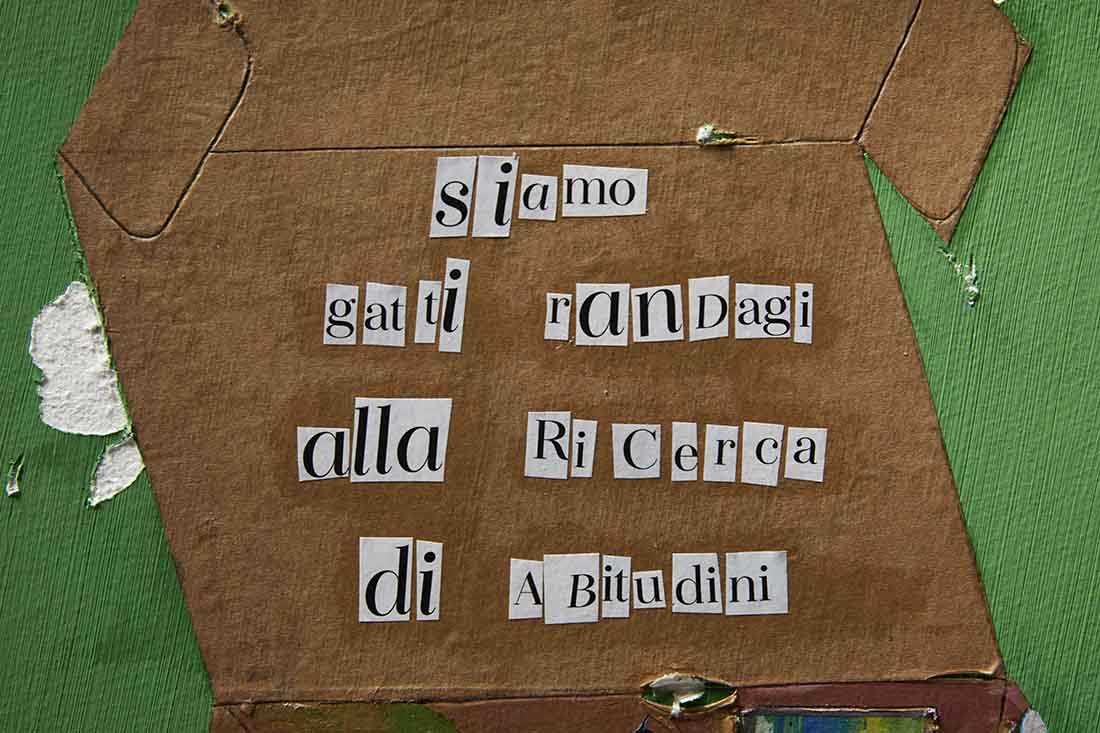 siamo
gatti rANDagi
alla Ri Cerca
di ABitudini